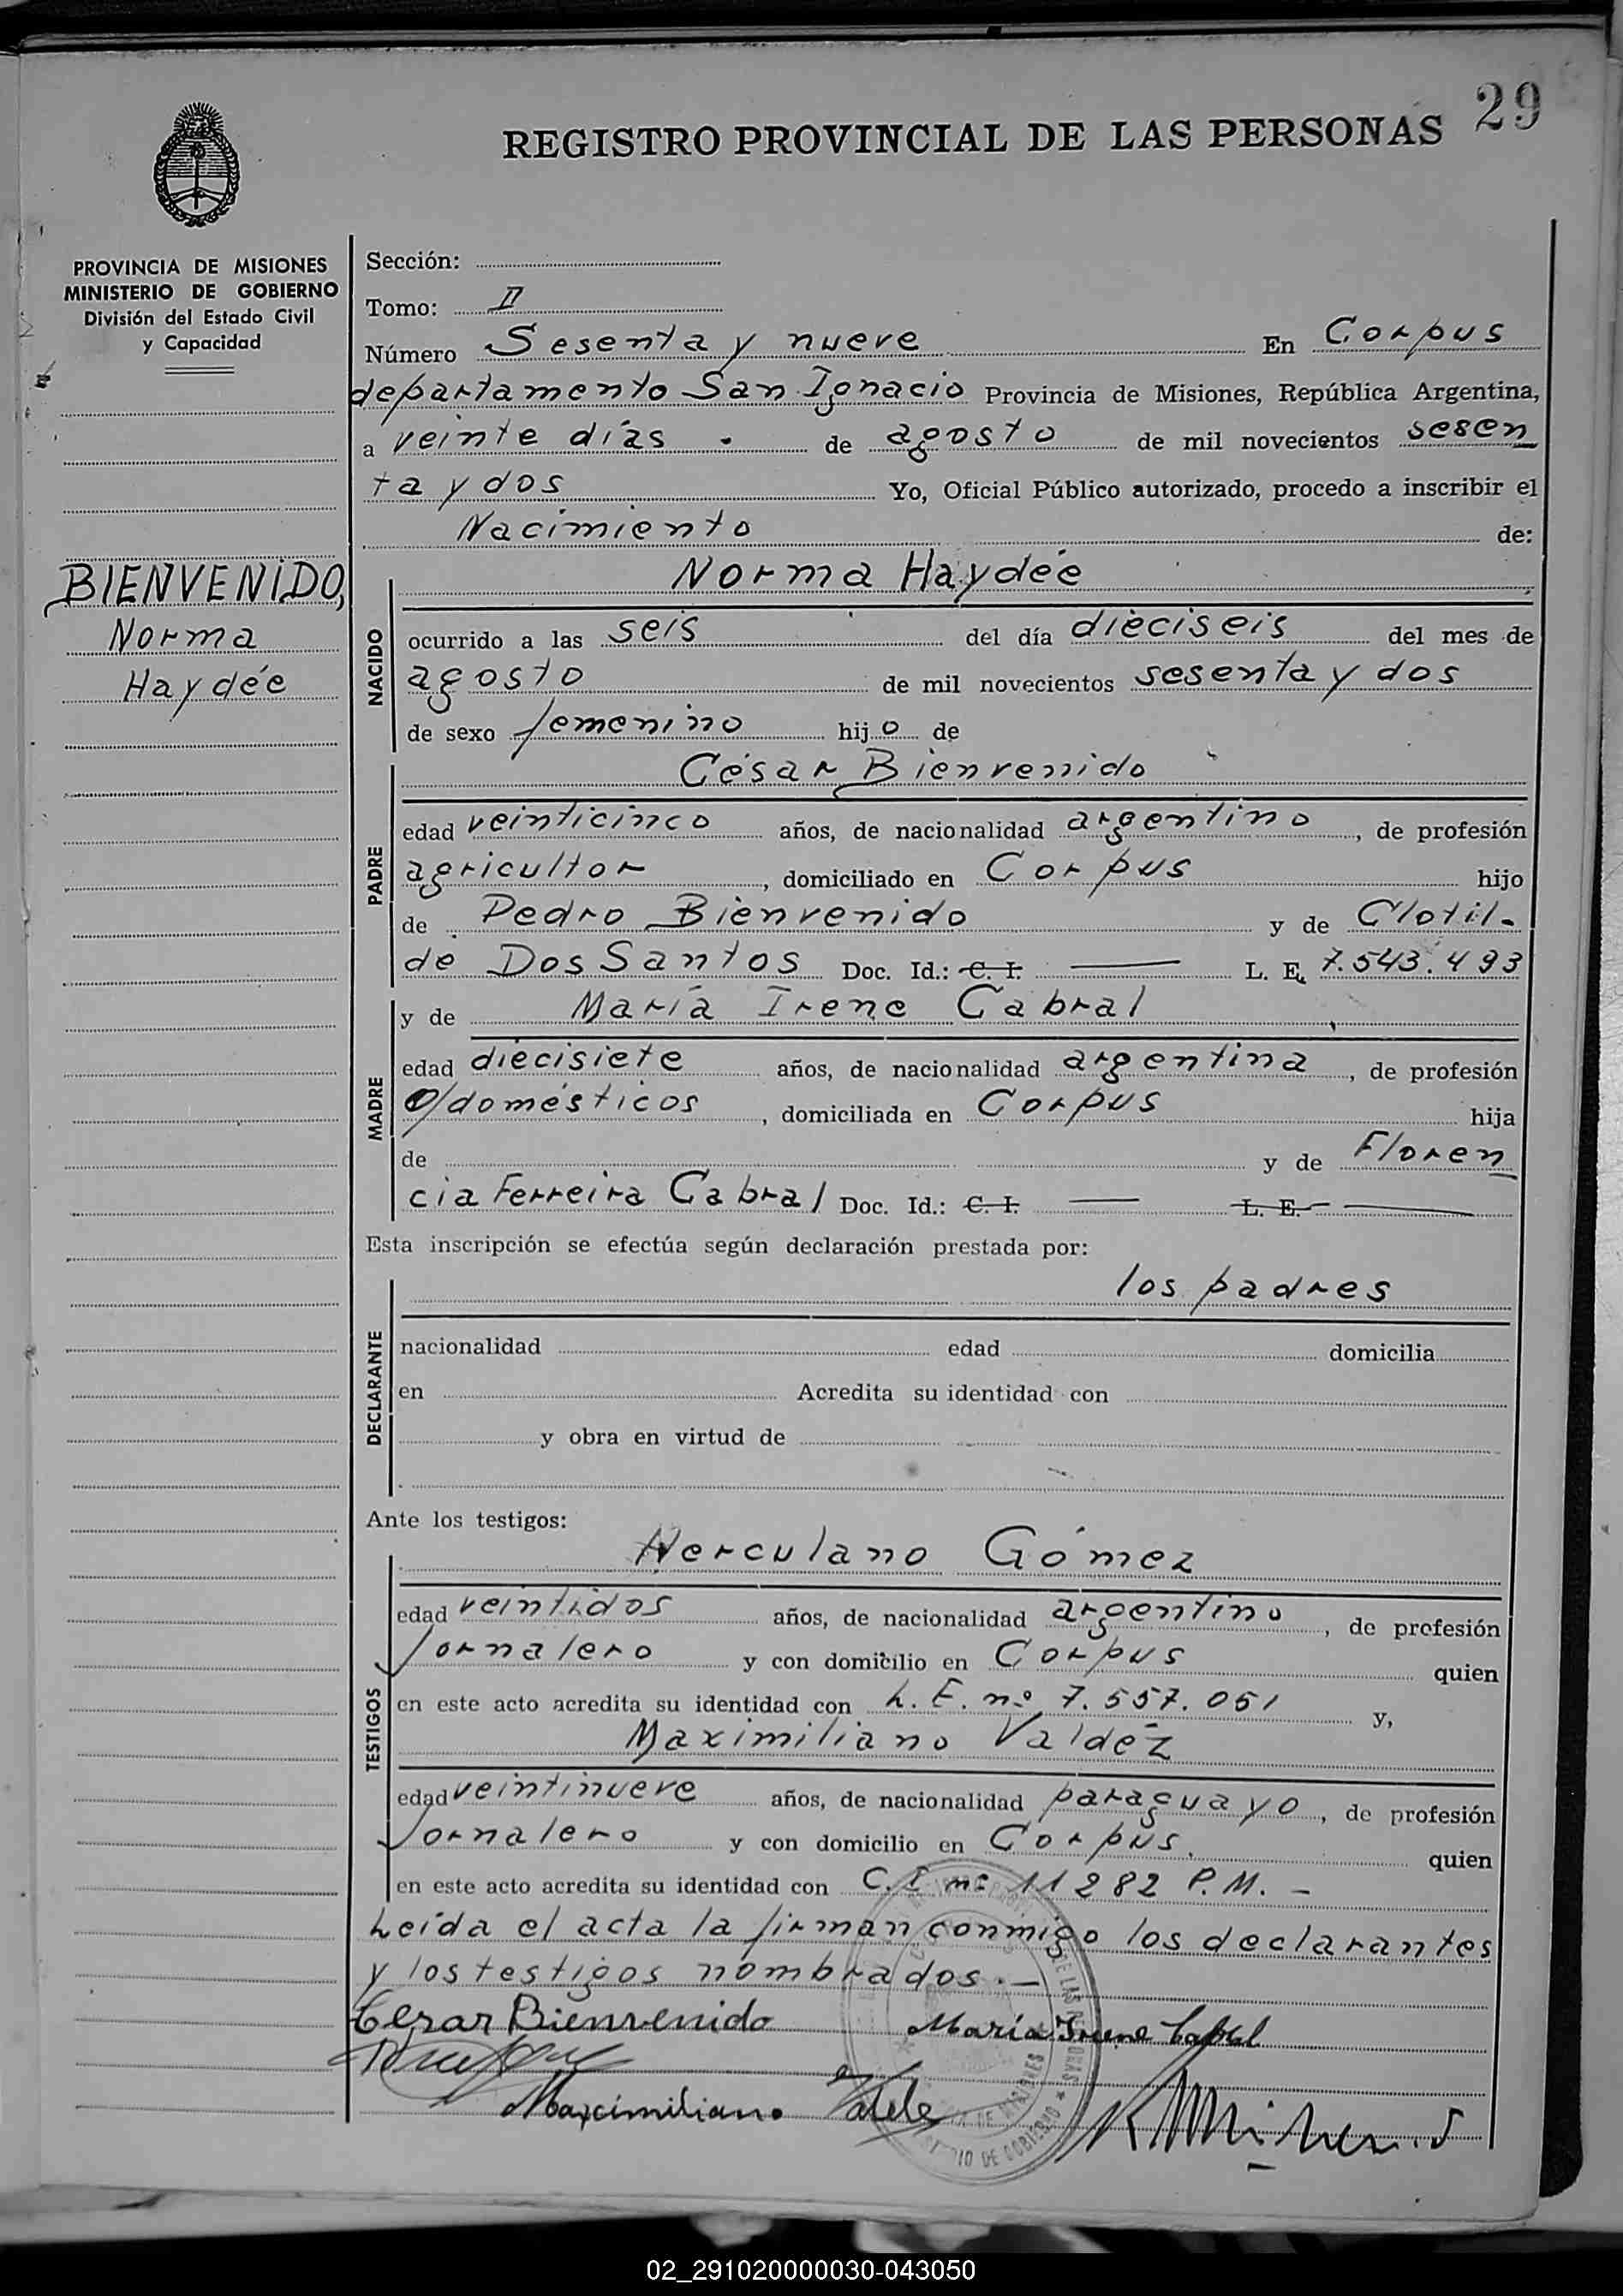 29
REGISTRO PROVINCIAL DE LAS PERSONAS
PROVINCIA DE MISIONES
MINISTERIO DE GOBIERNO
División del Estado Civil
y Capacidad
BIENVENIDO,
Norma
Haydée
Sección:
Tomo: II
Número Sesenta y nueve En Corpus
departamento San Ignacio Provincia de Misiones, República Argentina,
a veinte días de agosto de mil novecientos sesen
ta y dos Yo, Oficial Público autorizado, procedo a inscribir el
Nacimiento de:
NACIDO
Norma Haydée
ocurrido a las seis del día dieciseis del mes de
agosto de mil novecientos sesenta y dos
de sexo femenino hijo de
PADRE
César Bienvenido
edad veinticinco años, de nacionalidad argentino, de profesión
agricultor, domiciliado en Corpus hijo
de Pedro Bienvenido y de Clotil-
de Dos Santos Doc. Id.: C. I. — L. E. 7.543.493
MADRE
y de María Irene Cabral
edad diecisiete años, de nacionalidad argentina, de profesión
Q/domésticos, domiciliada en Corpus hija
de y de Floren
cia Ferreira Cabral Doc. Id.: C. I. — L. E. —
Esta inscripción se efectúa según declaración prestada por:
DECLARANTE
los padres
nacionalidad edad domicilia
en Acredita su identidad con
y obra en virtud de
Ante los testigos:
TESTIGOS
Herculano Gómez
edad veintidos años, de nacionalidad argentino, de profesión
Jornalero y con domicilio en Corpus quien
en este acto acredita su identidad con L. E. nº 7.557.051 y,
Maximiliano Valdéz
edad veintinueve años, de nacionalidad paraguayo, de profesión
Jornalero y con domicilio en Corpus. quien
en este acto acredita su identidad con C. I. nº 11282 P.M. -
Leída el acta la firman conmigo los declarantes
y los testigos nombrados.-
Cesar Bienvenido María Irene Cabral
Maximiliano
02_291020000030-043050